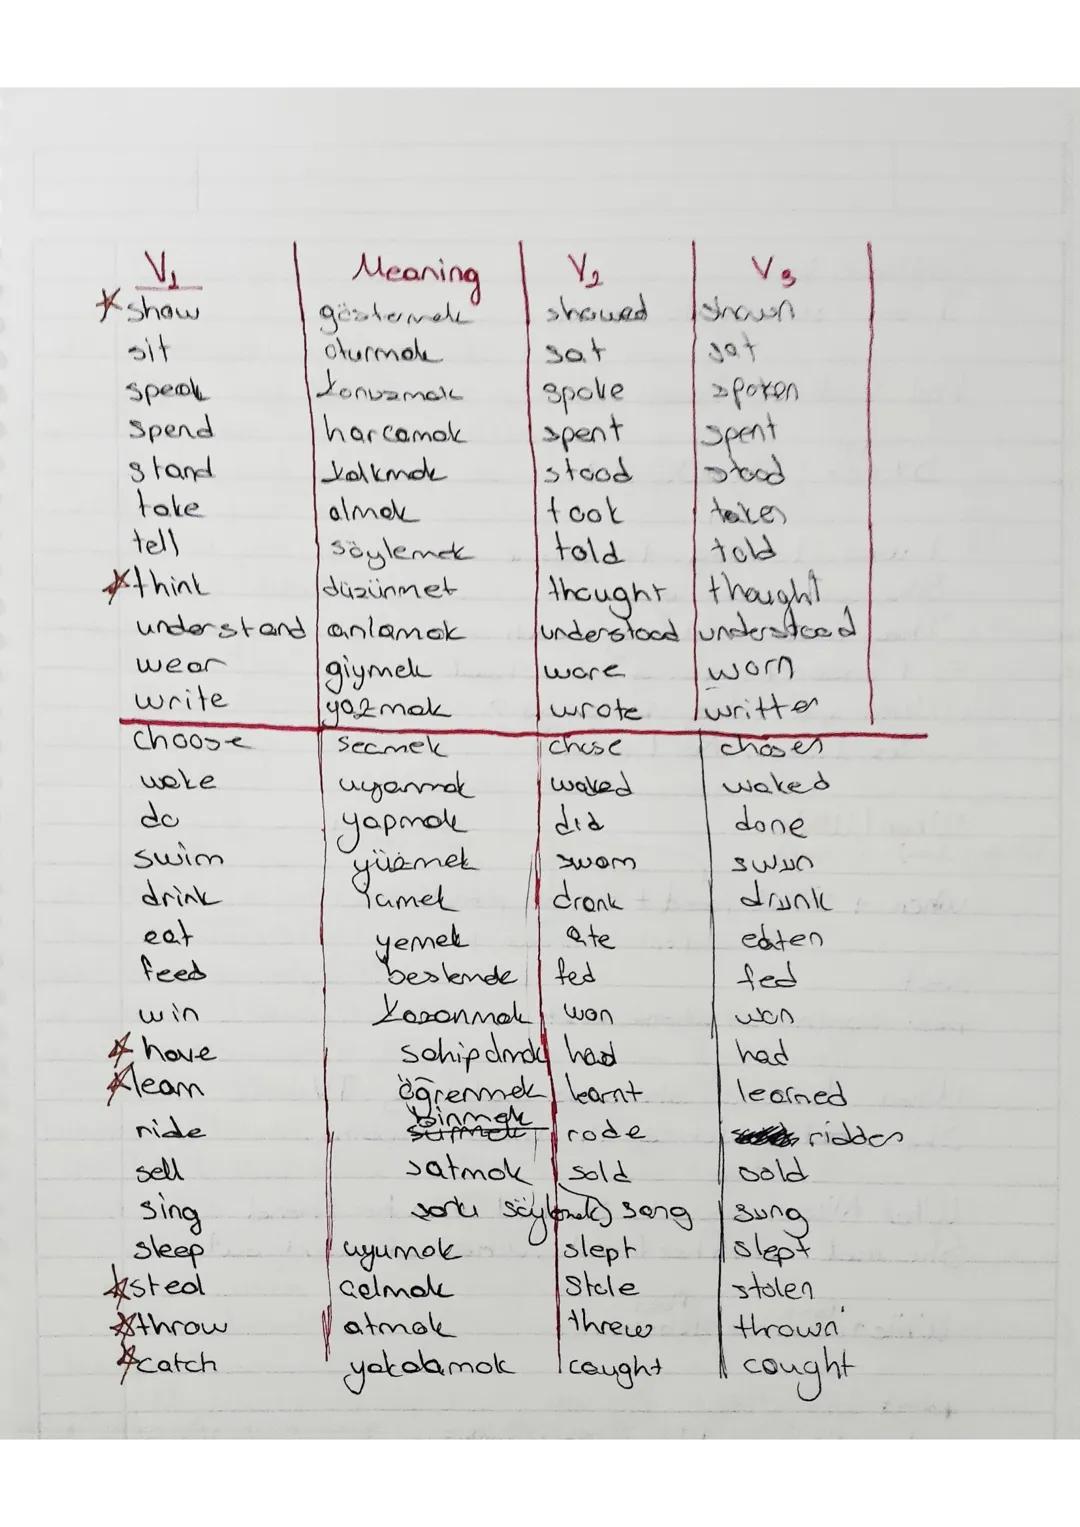 V1 Meaning V2 V3
show göstermek showed shown
sit oturmak sat sat
speak konuşmak spoke spoken
spend harcamak spent spent
stand kalkmak stood stood
take almak took taken
tell söylemek told told
think düşünmek thought thought
understand anlamak understood understood
wear giymek wore worn
write yazmak wrote written
choose secmek chose chosen
wake uyanmak waked waked
do yapmak did done
swim yüzmek swam swun
drink içmek drank drunk
eat yemek ate eaten
feed beslemek fed fed
win kazanmak won won
have sahip olmak had had
learn öğrenmek learnt learned
ride binmek rode ridden
sell satmak sold sold
sing şarkı söylemek sang sung
sleep uyumak slept slept
steal çalmak stole stolen
throw atmak threw thrown
catch yakalamak caught cought